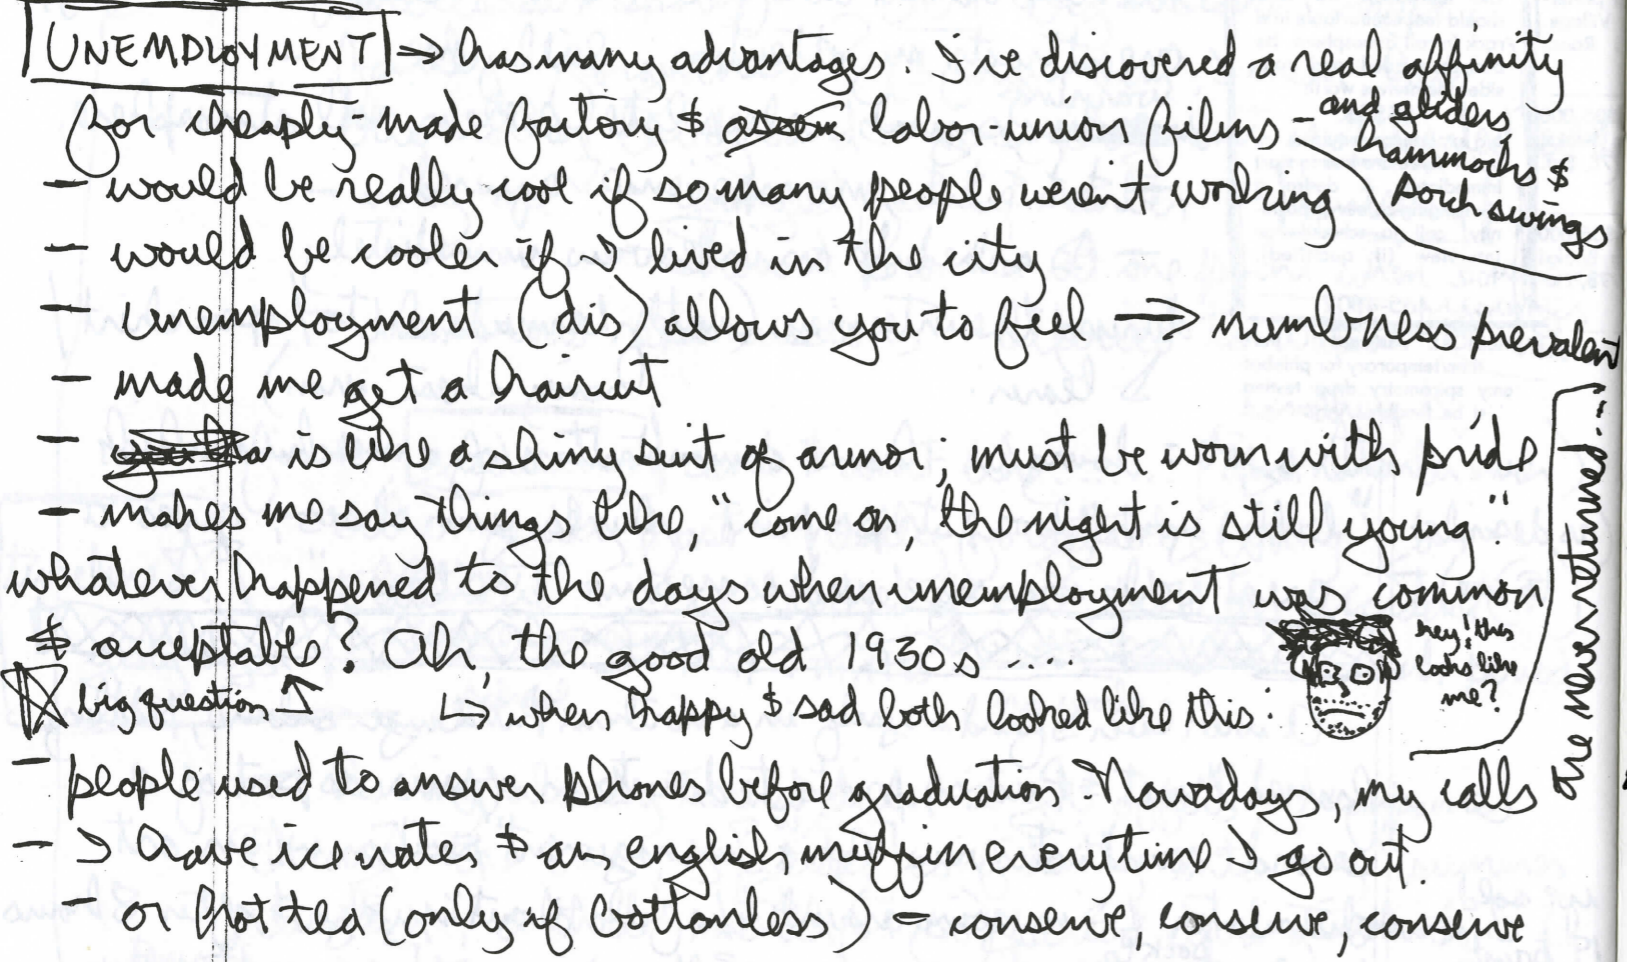 UNEMPLOYMENT → has many advantages. I've discovered a real affinity
for cheaply-made factory & labor-union films -
and gliders,
hammocks &
porch swings
- would be really cool if so many people weren't working
- would be cooler if I lived in the city
- unemployment (dis) allows you to feel → numbness prevalent
- made me get a haircut
- is like a shiny suit of armor; must be worn with pride
- makes me say things like, "come on, the night is still young."
whatever happened to the days when unemployment was common
& acceptable? Ah, the good old 1930s .....
big question ↑
↳ when happy & sad both looked like this:
hey! this
looks like
me?
- people used to answer phones before graduation. Nowadays, my calls
are never returned...
- I have ice water & an english muffin everytime I go out.
- or hot tea (only if bottomless) - conserve, conserve, conserve